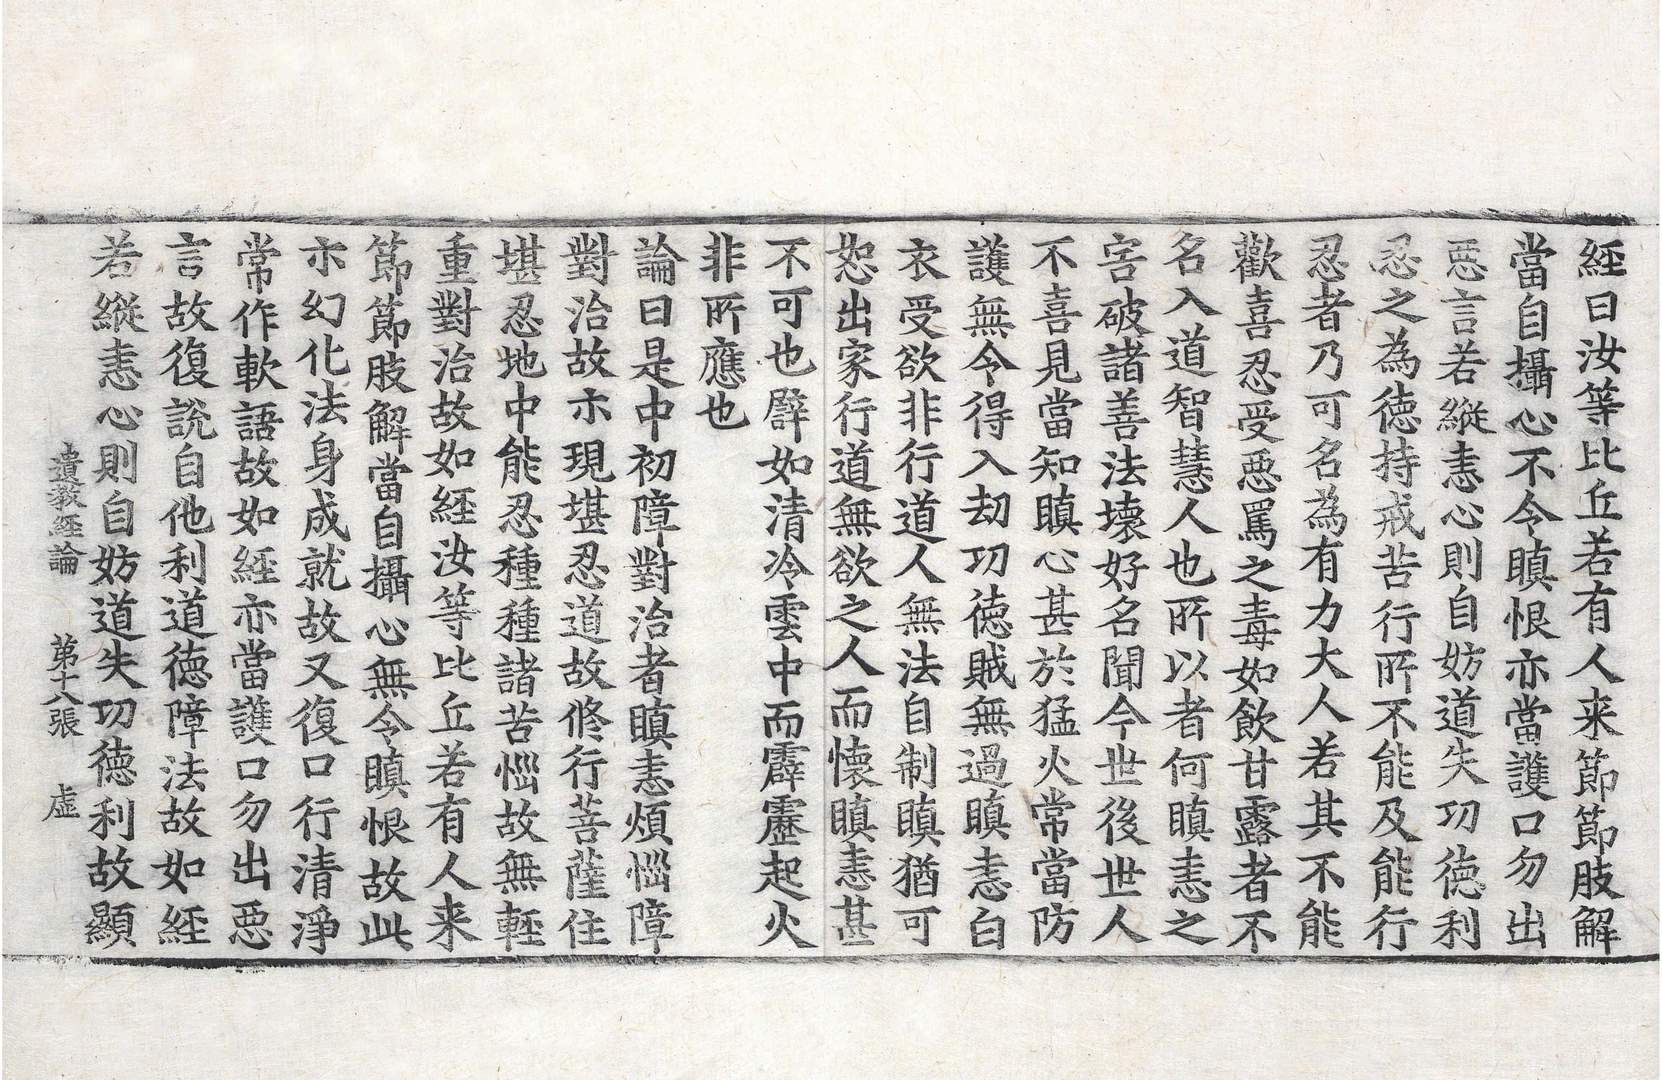 経曰汝等比丘若有人来節節肢解
當自攝心不令瞋恨亦當護口勿出
惡言若縱恚心則自妨道失功德利
忍之為德持戒苦行所不能及能行
忍者乃可名為有力大人若其不能
歡喜忍受惡罵之毒如飲甘露者不
名入道智慧人也所以者何瞋恚之
害破諸善法壞好名聞今世後世人
不喜見當知瞋心甚於猛火常當防
護無令得入劫功德賊無過瞋恚白
衣受欲非行道人無法自制瞋猶可
恕出家行道無欲之人而懷瞋恚甚
不可也譬如清冷雲中而霹靂起火
非所應也
論曰是中初障對治者瞋恚煩惱障
對治故示現堪忍道故修行菩薩住
堪忍地中能忍種種諸苦惱故無軽
重對治故如經汝等比丘若有人来
節節肢解當自攝心無令瞋恨故此
示幻化法身成就故又復口行清淨
常作軟語故如經亦當護口勿出惡
言故復說自他利道德障法故如經
若縱恚心則自妨道失功德利故顯
遺教経論 第十八張 虛